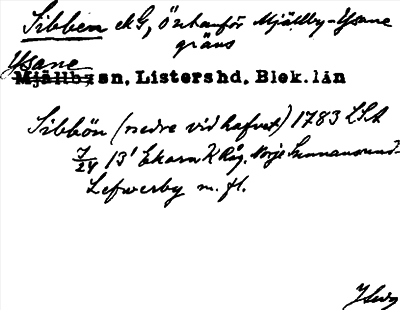 Sibben NG, öster för Mjällby-Ysane
gräns
Ysane
Mjällby sn, Listershd, Blek.län
Sibbön (nedre vid hafvet) 1783 LSA
7/24 13' Ekorn K Räg. Norje Sunnansund
Lefwerby m. fl.